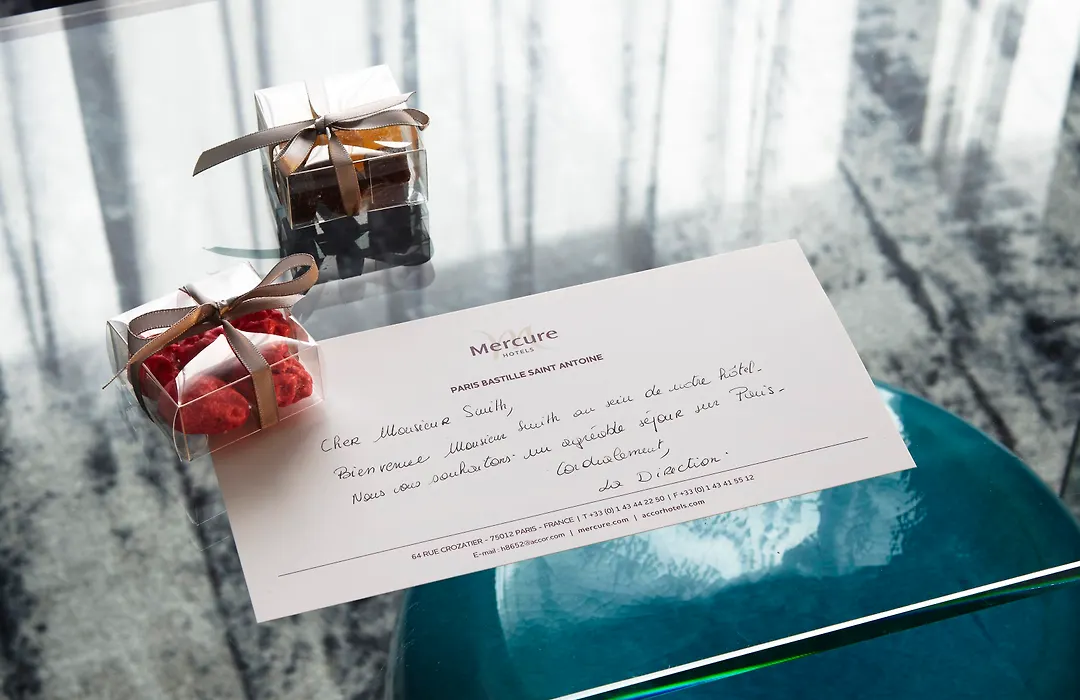 Mercure
HOTELS
PARIS BASTILLE SAINT ANTOINE
Cher Monsieur Smith,
Bienvenue Monsieur Smith au sein de notre hôtel.
Nous vous souhaitons un agréable séjour sur Paris.
Cordialement,
La Direction.
64 RUE CROZATIER - 75012 PARIS - FRANCE | T +33 (0) 1 43 44 22 50 | F +33 (0) 1 43 41 55 12
E-mail : h8652@accor.com | mercure.com | accorhotels.com